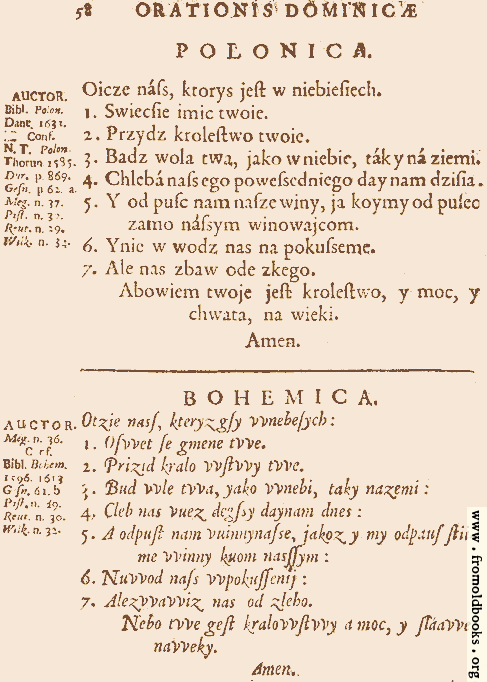 58 ORATIONIS DOMINICÆ
POLONICA.
AUCTOR.
Bibl. Polon.
Dant. 1632.
Conf.
N. T. Polon
Thorun 1585.
Dur. p. 869.
Gesn. p 62. a.
Meg. n. 37.
Pist. n. 32.
Reut. n. 29.
Wilk. n. 34.
Oicze náſs, ktorys jeſt w niebieſiech.
1. Swiecſie imic twoie.
2. Przydz kroleſtwo twoie.
3. Badz wola twa, jako w niebie, ták y ná ziemi.
4. Chlebá naſs ego poweſsedniego day nam dziſia.
5. Y od puſc nam naſze winy, ja koymy od puſec
zamo náſsym winowajcom.
6. Ynie w wodz nas na pokuſseme.
7. Ale nas zbaw ode zkego.
Abowiem twoje jeſt kroleſtwo, y moc, y
chwata, na wieki.
Amen.
BOHEMICA.
AUCTOR.
Meg. n. 36.
Bibl. Bohem.
1596. 1613
61. b
Pist. n. 29.
Reut. n. 30.
Wilk. n. 32.
Otzie naſſ, kteryzgſy vvnebeſych:
1. Oſvvet ſe gmene tvve.
2. Prizid kralo vvſtvvy tvve.
3. Bud vvle tvva, yako vvnebi, taky nazemi:
4. Cleb nas vuez dezſsy daynam dnes:
5. A odpuſt nam vuinnynaſse, jakoz y my odpauſ ſti
me vvinny kuom nasſſym:
6. Nuvvod naſs vvpokuſſenij:
7. Alezvvavviz nas od zlebo.
Nebo tvve geſt kralovvſtvvy a moc, y ſlaavv
navveky.
Amen.
www.fromoldbooks.org